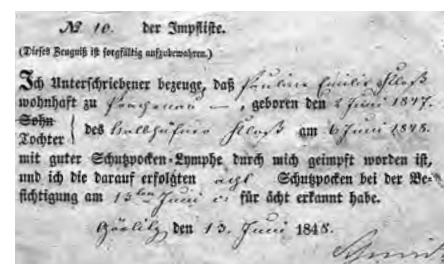 № 10. der Impfliste.
(Dieses Zeugniß ist sorgfältig aufzubewahren.)
Ich Unterschriebener bezeuge, daß Pauline Emilie
wohnhaft zu —, geboren den 2 Juni 1847.
Sohn
Tochter } des am 6 Juni 1848.
mit guter Schutzpocken-Lymphe durch mich geimpft worden ist,
und ich die darauf erfolgten Schutzpocken bei der Be-
sichtigung am 13ten Juni für ächt erkannt habe.
Görlitz, den 13. Juni 1848.